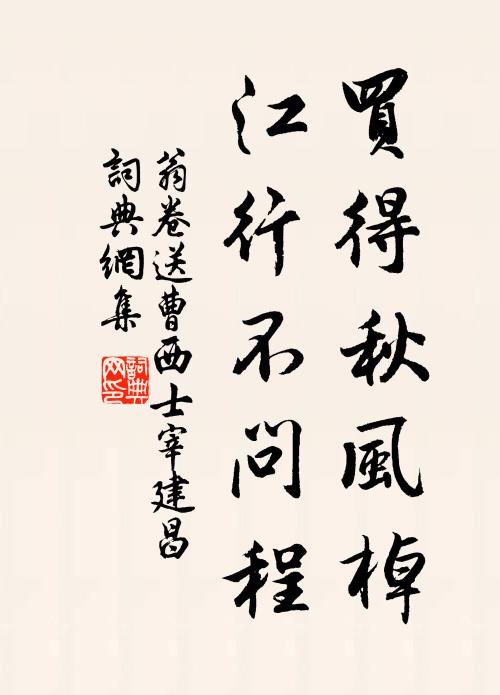 買得秋風棹
江行不問程
翁卷送曹西士宰建昌
詞典網集
詞典網印